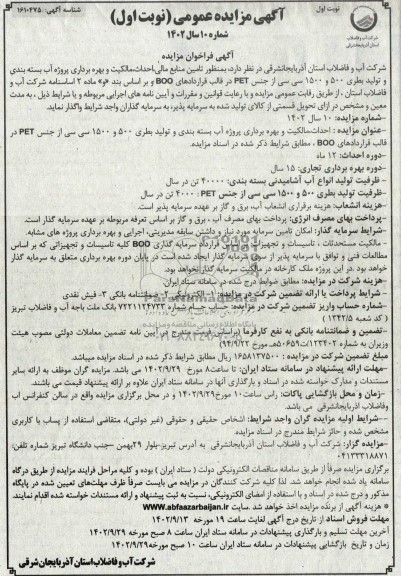 نوبت اول
آگهی مزایده عمومی (نوبت اول)
شناسه آگهی: ۱۶۱۰۴۷۵
شماره ۱۰ سال ۱۴۰۲
شرکت آب و فاضلاب استان آذربایجان‌شرقی
آگهی فراخوان مزایده
شرکت آب و فاضلاب استان آذربایجانشرقی در نظر دارد، بمنظور تامین منابع مالی، احداث، مالکیت و بهره برداری پروژه آب بسته بندی
و تولید بطری ۵۰۰ و ۱۵۰۰ سی سی از جنس PET در قالب قراردادهای BOO و بر اساس بند «و» ماده ۲ اساسنامه شرکت آب و
فاضلاب استان، از طریق رقابت عمومی مزایده و با رعایت قوانین و مقررات و آیین نامه های اجرایی مربوطه و با شرایط ذیل، به مدت
معین و مشخص در ازای تحویل قسمتی از کالای تولید شده به سرمایه پذیر، به سرمایه گذاران واجد شرایط واگذار نماید.
-شماره مزایده: ۱۰ سال ۱۴۰۲
-عنوان مزایده : احداث،مالکیت و بهره برداری پروژه آب بسته بندی و تولید بطری ۵۰۰ و ۱۵۰۰ سی سی از جنس PET در
قالب قراردادهای BOO ، مطابق شرایط ذکر شده در اسناد مزایده.
-دوره احداث: ۱۲ ماه
-دوره بهره برداری تجاری: ۱۵ سال
- ظرفیت تولید انواع آب آشامیدنی بسته بندی: ۴۰۰۰۰ تن در سال
- ظرفیت تولید بطری ۵۰۰ و ۱۵۰۰ سی سی از جنس PET : ۴۰۰۰ تن در سال
-هزینه انشعاب: هزینه برقراری انشعاب آب، برق و گاز بر عهده سرمایه پذیر است.
-پرداخت بهای مصرف انرژی: پرداخت بهای مصرف آب ، برق و گاز بر اساس تعرفه مربوطه بر عهده سرمایه گذار است.
-شرایط سرمایه گذار: امکان تامین سرمایه مورد نیاز و داشتن سابقه مدیریتی، اجرایی و بهره برداری پروژه های مشابه.
- مالکیت مستحدثات ، تاسیسات و تجهیزات: قرارداد سرمایه گذاری BOO کلیه تاسیسات و تجهیزاتی که بر اساس
مطالعات فنی و توافق با سرمایه پذیر از سوی سرمایه گذار ایجاد شده است در پایان دوره بهره برداری متعلق به سرمایه گذار
خواهد بود. در این پروژه ملک کارخانه در مالکیت سرمایه گذار نخواهد بود.
-هزینه شرکت در مزایده: مطابق ضوابط درج شده در سامانه ستاد ایران.
-شرایط پرداخت یا ارائه تضمین شرکت در مزایده: ۱- الکترونیکی ۲- ضمانتنامه بانکی ۳- فیش نقدی
-شماره حساب واریز تضمین شرکت در مزایده: حساب جسام شماره ۷۲۲۱۱۲۴۷۳۳ بانک ملت باجه آب و فاضلاب تبریز
( کد شعبه ۱۳۴۲/۵)
-تضمین و ضمانتنامه بانکی به نفع کارفرما (براساس فرمت مندرج در آیین نامه تضمین معاملات دولتی مصوب هیئت
وزیران به شماره ۱۲۳۴۰۲/ت۵۰۶۵۹هـ مورخ ۹۴/۹/۲۲)
مبلغ تضمین شرکت در مزایده : ۱۶۵۸۱۳۷۵۰۰ ریال مطابق شرایط ذکر شده در اسناد مزایده میباشد.
-مهلت ارائه پیشنهاد در سامانه ستاد ایران: تا ساعت ۸ مورخ ۱۴۰۲/۹/۲۹ می باشد. مزایده گران موظف به ارائه سایر
مستندات و مدارک خواسته شده در اسناد و بارگذاری آنها در سامانه ستاد ایران علاوه بر ارائه پیشنهاد قیمت می باشند.
-زمان و محل بازگشایی پاکات: راس ساعت ۱۰ مورخ ۱۴۰۲/۹/۲۹ و در محل برگزاری مزایده واقع در سالن کنفرانس آب
وفاضلاب آذربایجانشرقی می باشد.
-شرایط اولیه مزایده گران واجد شرایط: اشخاص حقیقی و حقوقی (غیر دولتی)، متقاضی استفاده از پساب با کاربری
مشخص شده و حائز شرایط مندرج در اسناد مزایده
-مزایده گزار: شرکت آب و فاضلاب استان آذربایجانشرقی به آدرس تبریز-بلوار ۲۹بهمن -جنب دانشگاه تبریز شماره تلفن:
۰۴۱۳۳۳۱۸۸۷۱
برگزاری مزایده صرفاً از طریق سامانه مناقصات الکترونیکی دولت ( ستاد ایران ) بوده و کلیه مراحل فرایند مزایده از طریق درگاه
سامانه یاد شده انجام خواهد شد. لذا کلیه شرکت کنندگان در مزایده می بایست صرفاً ظرف مهلت‌های تعیین شده در پایگاه
مذکور و درج شده در اسناد و با استفاده از امضای الکترونیکی، نسبت به ثبت پیشنهاد و ارائه مستندات خواسته شده اقدام نمایند.
* هزینه آگهی از برنده مزایده اخذ خواهد شد .سایت www.abfaazarbaijan.ir
مهلت فروش اسناد از تاریخ درج آگهی لغایت ساعت ۱۹ مورخه ۱۴۰۲/۹/۱۳
آخرین مهلت تسلیم و بارگذاری پیشنهادات در سامانه ستاد ایران ساعت ۸ صبح مورخه ۱۴۰۲/۹/۲۹
زمان و تاریخ بازگشایی پیشنهادات در سامانه ستاد ایران ساعت ۱۰ صبح مورخه ۱۴۰۲/۹/۲۹
شرکت آب و فاضلاب استان آذربایجان شرقی